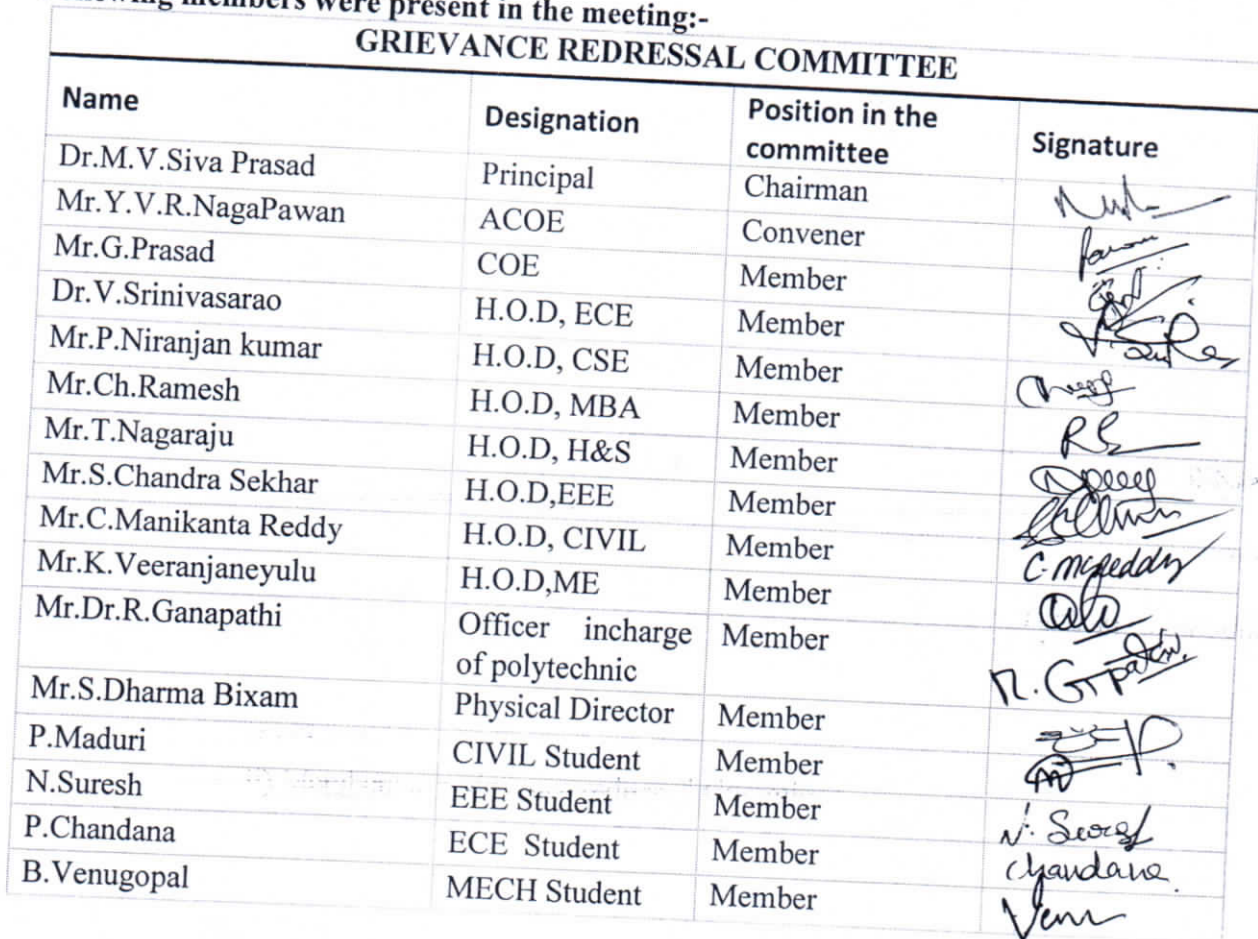 members were present in the meeting:-
GRIEVANCE REDRESSAL COMMITTEE
Name Designation Position in the committee Signature
Dr.M.V.Siva Prasad Principal Chairman
Mr.Y.V.R.NagaPawan ACOE Convener
Mr.G.Prasad COE Member
Dr.V.Srinivasarao H.O.D, ECE Member
Mr.P.Niranjan kumar H.O.D, CSE Member
Mr.Ch.Ramesh H.O.D, MBA Member
Mr.T.Nagaraju H.O.D, H&S Member
Mr.S.Chandra Sekhar H.O.D,EEE Member
Mr.C.Manikanta Reddy H.O.D, CIVIL Member C. mreddy
Mr.K.Veeranjaneyulu H.O.D,ME Member
Mr.Dr.R.Ganapathi Officer incharge of polytechnic Member
Mr.S.Dharma Bixam Physical Director Member
P.Maduri CIVIL Student Member
N.Suresh EEE Student Member
P.Chandana ECE Student Member Chandana
B.Venugopal MECH Student Member Venu